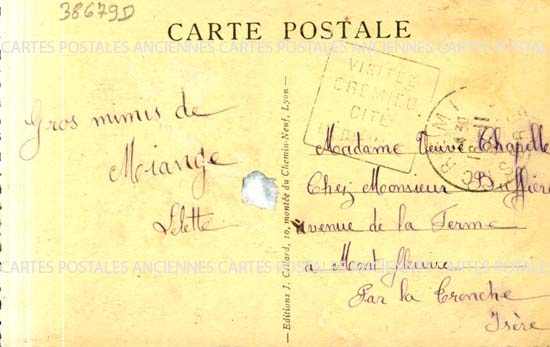 38679D
CARTE POSTALE
CARTES POSTALES ANCIENNES CARTES POSTALES ANCIENNES CARTES POSTALES
VISITEZ
CREMIEU
CITE
Gros mimis de
Miange
Lilette
Editions J. Cellard, 10, montée du Chemin-Neuf, Lyon
Madame Veuve Chapelle
Chez Monsieur Buffière
avenue de la Ferme
a Montfleury
Par la Tronche
Isère
CARTES POSTALES ANCIENNES CARTES POSTALES ANCIENNES CARTES POSTALES